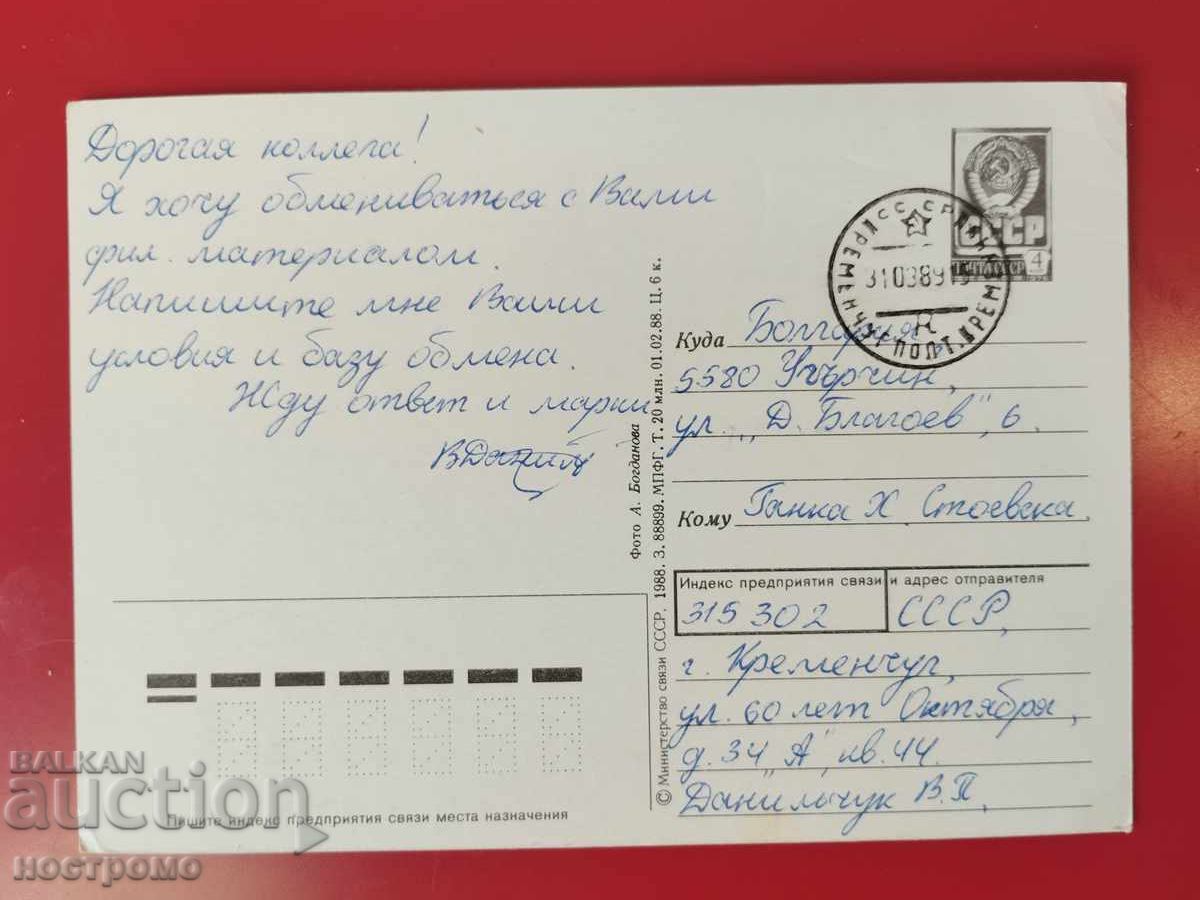 Дорогая коллега!
Я хочу обмениваться с Вами
фил. материалом.
Напишите мне Ваши
условия и базу обмена.
Жду ответ и марки
СССР
4
31 03 89
КРЕМЕНЧУГ ПОЛТ.
R
Куда Болгария
5580 Угърчин,
ул. „Д. Благоев", 6.
Кому Ганка Х Стоевска
Индекс предприятия связи и адрес отправителя
315302 СССР,
г. Кременчуг,
ул. 60 лет Октября,
д. 34 "А", кв. 44.
Данильчук В.П.
Фото А. Богданова
© Министерство связи СССР. 1988. З. 88899. МПФГ. Т. 20 млн. 01.02.88. Ц. 6 к.
Пишите индекс предприятия связи места назначения
BALKAN
auction
ностромо